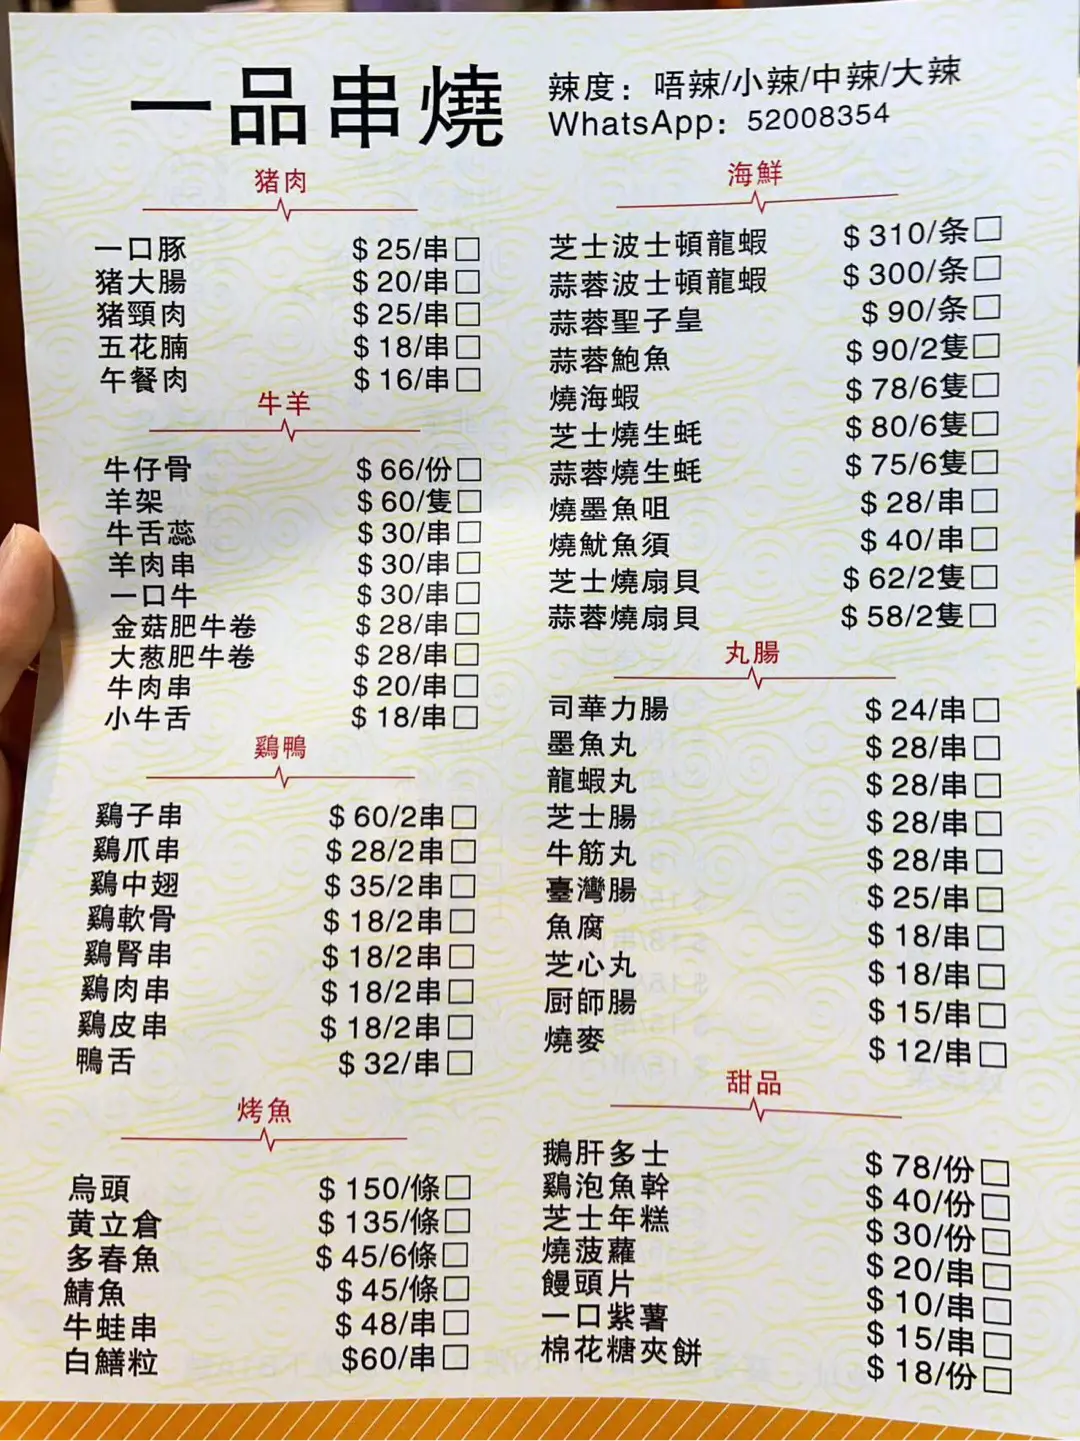 一品串燒
辣度：唔辣/小辣/中辣/大辣
WhatsApp：52008354
猪肉
一口豚 $ 25/串□
猪大腸 $ 20/串□
猪頸肉 $ 25/串□
五花腩 $ 18/串□
午餐肉 $ 16/串□
牛羊
牛仔骨 $ 66/份□
羊架 $ 60/隻□
牛舌蕊 $ 30/串□
羊肉串 $ 30/串□
一口牛 $ 30/串□
金菇肥牛卷 $ 28/串□
大葱肥牛卷 $ 28/串□
牛肉串 $ 20/串□
小牛舌 $ 18/串□
鷄鴨
鷄子串 $ 60/2串□
鷄爪串 $ 28/2串□
鷄中翅 $ 35/2串□
鷄軟骨 $ 18/2串□
鷄腎串 $ 18/2串□
鷄肉串 $ 18/2串□
鷄皮串 $ 18/2串□
鴨舌 $ 32/串□
烤魚
烏頭 $ 150/條□
黄立倉 $ 135/條□
多春魚 $ 45/6條□
鯖魚 $ 45/條□
牛蛙串 $ 48/串□
白鱔粒 $60/串□
海鮮
芝士波士頓龍蝦 $ 310/条□
蒜蓉波士頓龍蝦 $ 300/条□
蒜蓉聖子皇 $ 90/条□
蒜蓉鮑魚 $ 90/2隻□
燒海蝦 $ 78/6隻□
芝士燒生蚝 $ 80/6隻□
蒜蓉燒生蚝 $ 75/6隻□
燒墨魚咀 $ 28/串□
燒魷魚須 $ 40/串□
芝士燒扇貝 $ 62/2隻□
蒜蓉燒扇貝 $ 58/2隻□
丸腸
司華力腸 $ 24/串□
墨魚丸 $ 28/串□
龍蝦丸 $ 28/串□
芝士腸 $ 28/串□
牛筋丸 $ 28/串□
臺灣腸 $ 25/串□
魚腐 $ 18/串□
芝心丸 $ 18/串□
厨師腸 $ 15/串□
燒麥 $ 12/串□
甜品
鵝肝多士 $ 78/份□
鷄泡魚幹 $ 40/份□
芝士年糕 $ 30/份□
燒菠蘿 $ 20/串□
饅頭片 $ 10/串□
一口紫薯 $ 15/串□
棉花糖夾餅 $ 18/份□